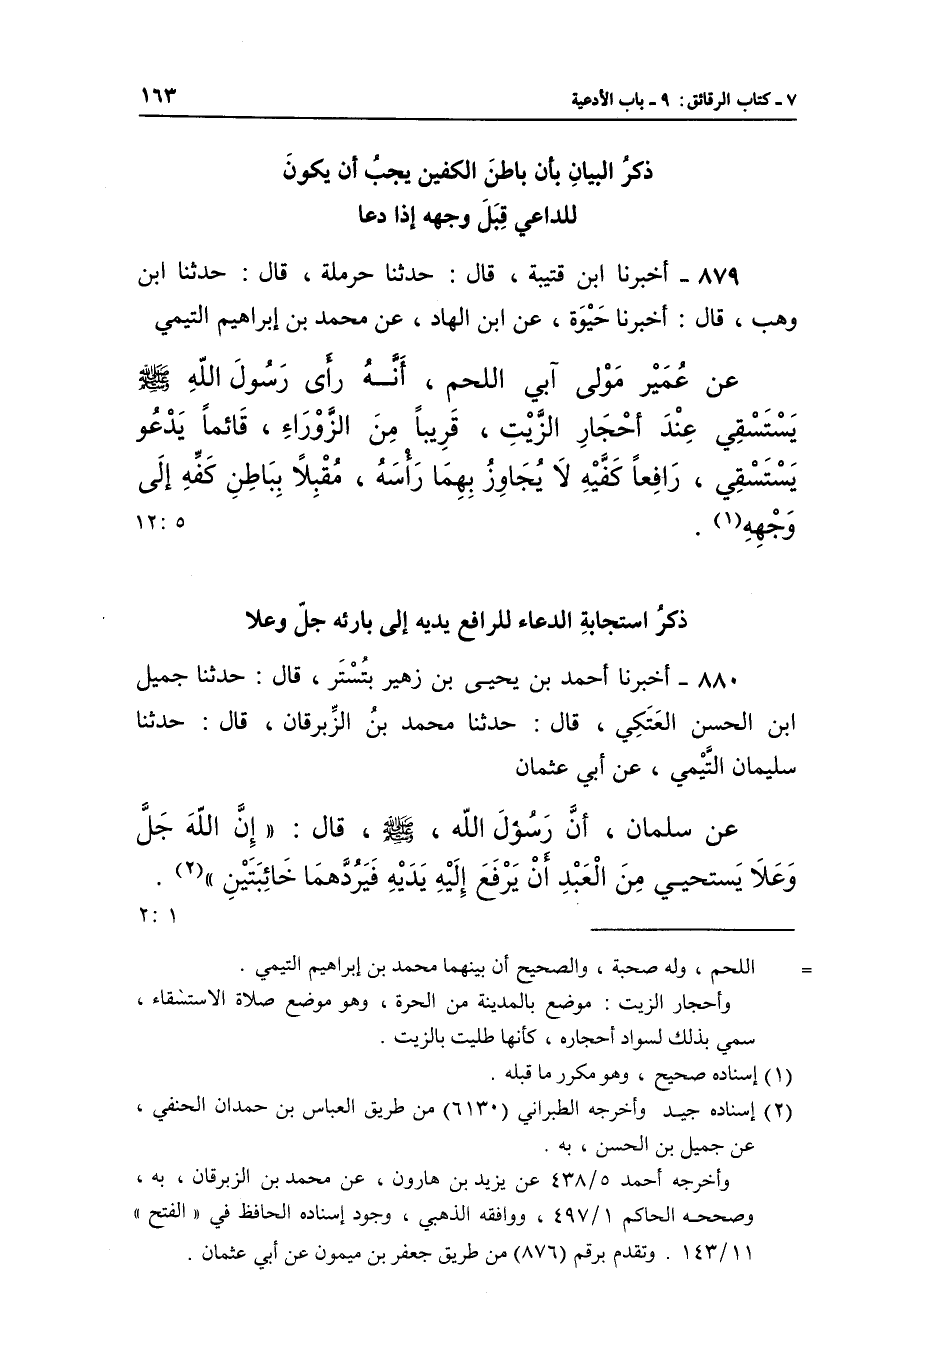 ٧ ـ كتاب الرقائق : ٩ ـ باب الأدعية ١٦٣
ذكرُ البيانِ بأن باطنَ الكفين يجبُ أن يكونَ
للداعي قِبَلَ وجهه إذا دعا
٨٧٩ ـ أخبرنا ابن قتيبة ، قال : حدثنا حرملة ، قال : حدثنا ابن
وهب ، قال : أخبرنا حَيْوَة ، عن ابن الهاد ، عن محمد بن إبراهيم التيمي
عن عُمَيْر مَوْلى آبي اللحم ، أَنَّــهُ رأَى رَسُولَ اللّهِ ﷺ
يَسْتَسْقِي عِنْدَ أحْجَارِ الزَّيْتِ ، قَرِيباً مِنَ الزَّوْرَاءِ ، قَائماً يَدْعُو
يَسْتَسْقِي ، رَافِعاً كَفَّيْهِ لَا يُجَاوِزُ بِهِمَا رَأْسَهُ ، مُقْبِلًا بِبَاطِنِ كَفِّهِ إلَى
وَجْهِهِ(١) . ٥ :١٢
ذكرُ استجابةِ الدعاء للرافع يديه إلى بارئه جلّ وعلا
٨٨٠ ـ أخبرنا أحمد بن يحيـى بن زهير بتُسْتَر ، قال : حدثنا جميل
ابن الحسن العَتَكِي ، قال : حدثنا محمد بنُ الزِّبرقان ، قال : حدثنا
سليمان التَّيْمي ، عن أبي عثمان
عن سلمان ، أنَّ رَسُوْلَ اللّه ، ﷺ ، قال : « إِنَّ اللّهَ جَلَّ
وَعَلَا يَستحيـي مِنَ الْعَبْدِ أَنْ يَرْفَعَ إِلَيْهِ يَدَيْهِ فَيَرُدَّهمَا خَائِبَتَيْنِ »(٢) .
١ :٢
= اللحم ، وله صحبة ، والصحيح أن بينهما محمد بن إبراهيم التيمي .
وأحجار الزيت : موضع بالمدينة من الحرة ، وهو موضع صلاة الاستسقاء ،
سمي بذلك لسواد أحجاره ، كأنها طليت بالزيت .
(١) إسناده صحيح ، وهو مكرر ما قبله .
(٢) إسناده جيـد وأخرجه الطبراني (٦١٣٠) من طريق العباس بن حمدان الحنفي ،
عن جميل بن الحسن ، به .
وأخرجه أحمد ٤٣٨/٥ عن يزيد بن هارون ، عن محمد بن الزبرقان ، به ،
وصححـه الحاكم ٤٩٧/١ ، ووافقه الذهبي ، وجود إسناده الحافظ في « الفتح »
١٤٣/١١ . وتقدم برقم (٨٧٦) من طريق جعفر بن ميمون عن أبي عثمان .